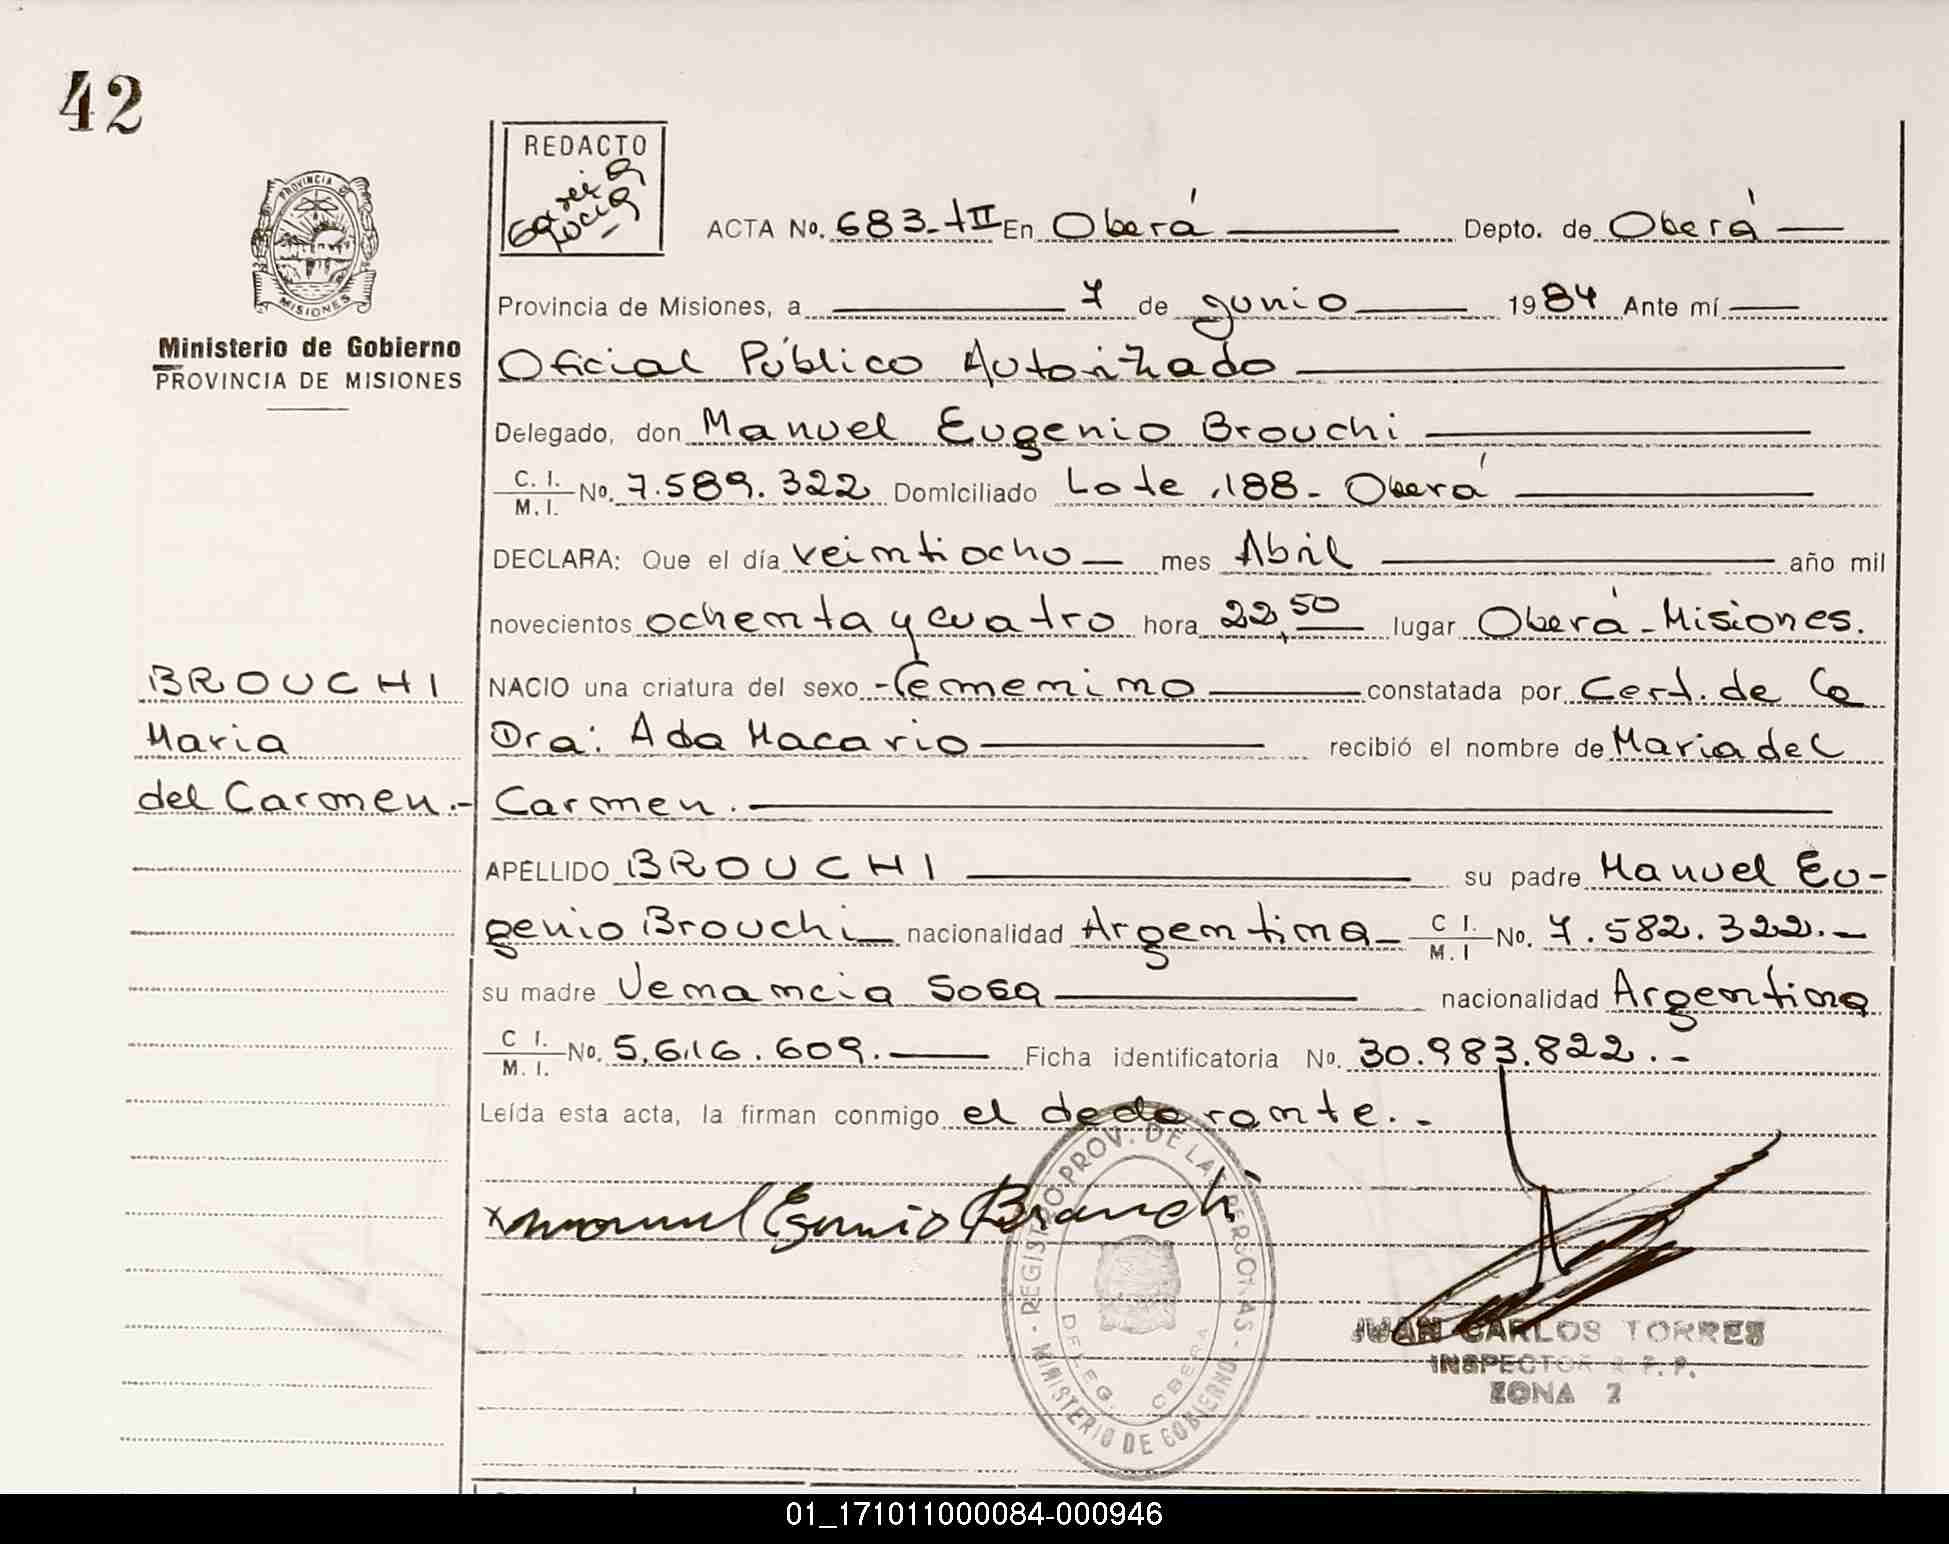 42
REDACTO
Garcia
Lucia
ACTA No. 683-tII En Oberá Depto. de Oberá
PROVINCIA DE
MISIONES
Ministerio de Gobierno
PROVINCIA DE MISIONES
Provincia de Misiones, a 7 de junio 1984 Ante mí
Oficial Público Autorizado
Delegado, don Manuel Eugenio Brouchi
C. I. / M. I. No. 7.589.322 Domiciliado Lote 188- Oberá
DECLARA: Que el día veintiocho mes Abril año mil
novecientos ochenta y cuatro hora 22,50 lugar Oberá-Misiones.
NACIO una criatura del sexo -femenino constatada por Cert. de la
Dra: Ada Macario recibió el nombre de Maria del
Carmen.
BROUCHI
Maria
del Carmen.-
APELLIDO BROUCHI su padre Manuel Eu-
genio Brouchi nacionalidad Argentina C I. / M. I No. 7.582.322.-
su madre Venancia Sosa nacionalidad Argentina
C I. / M. I. No. 5.616.609. Ficha identificatoria No. 30.983.822.-
Leída esta acta, la firman conmigo el declarante.-
x manuel Egenio Brouchi
- REGISTRO PROV. DE LAS PERSONAS -
MINISTERIO DE GOBIERNO
DELEG. OBERA
JUAN CARLOS TORRES
INSPECTOR R. P. P.
ZONA 2
01_171011000084-000946